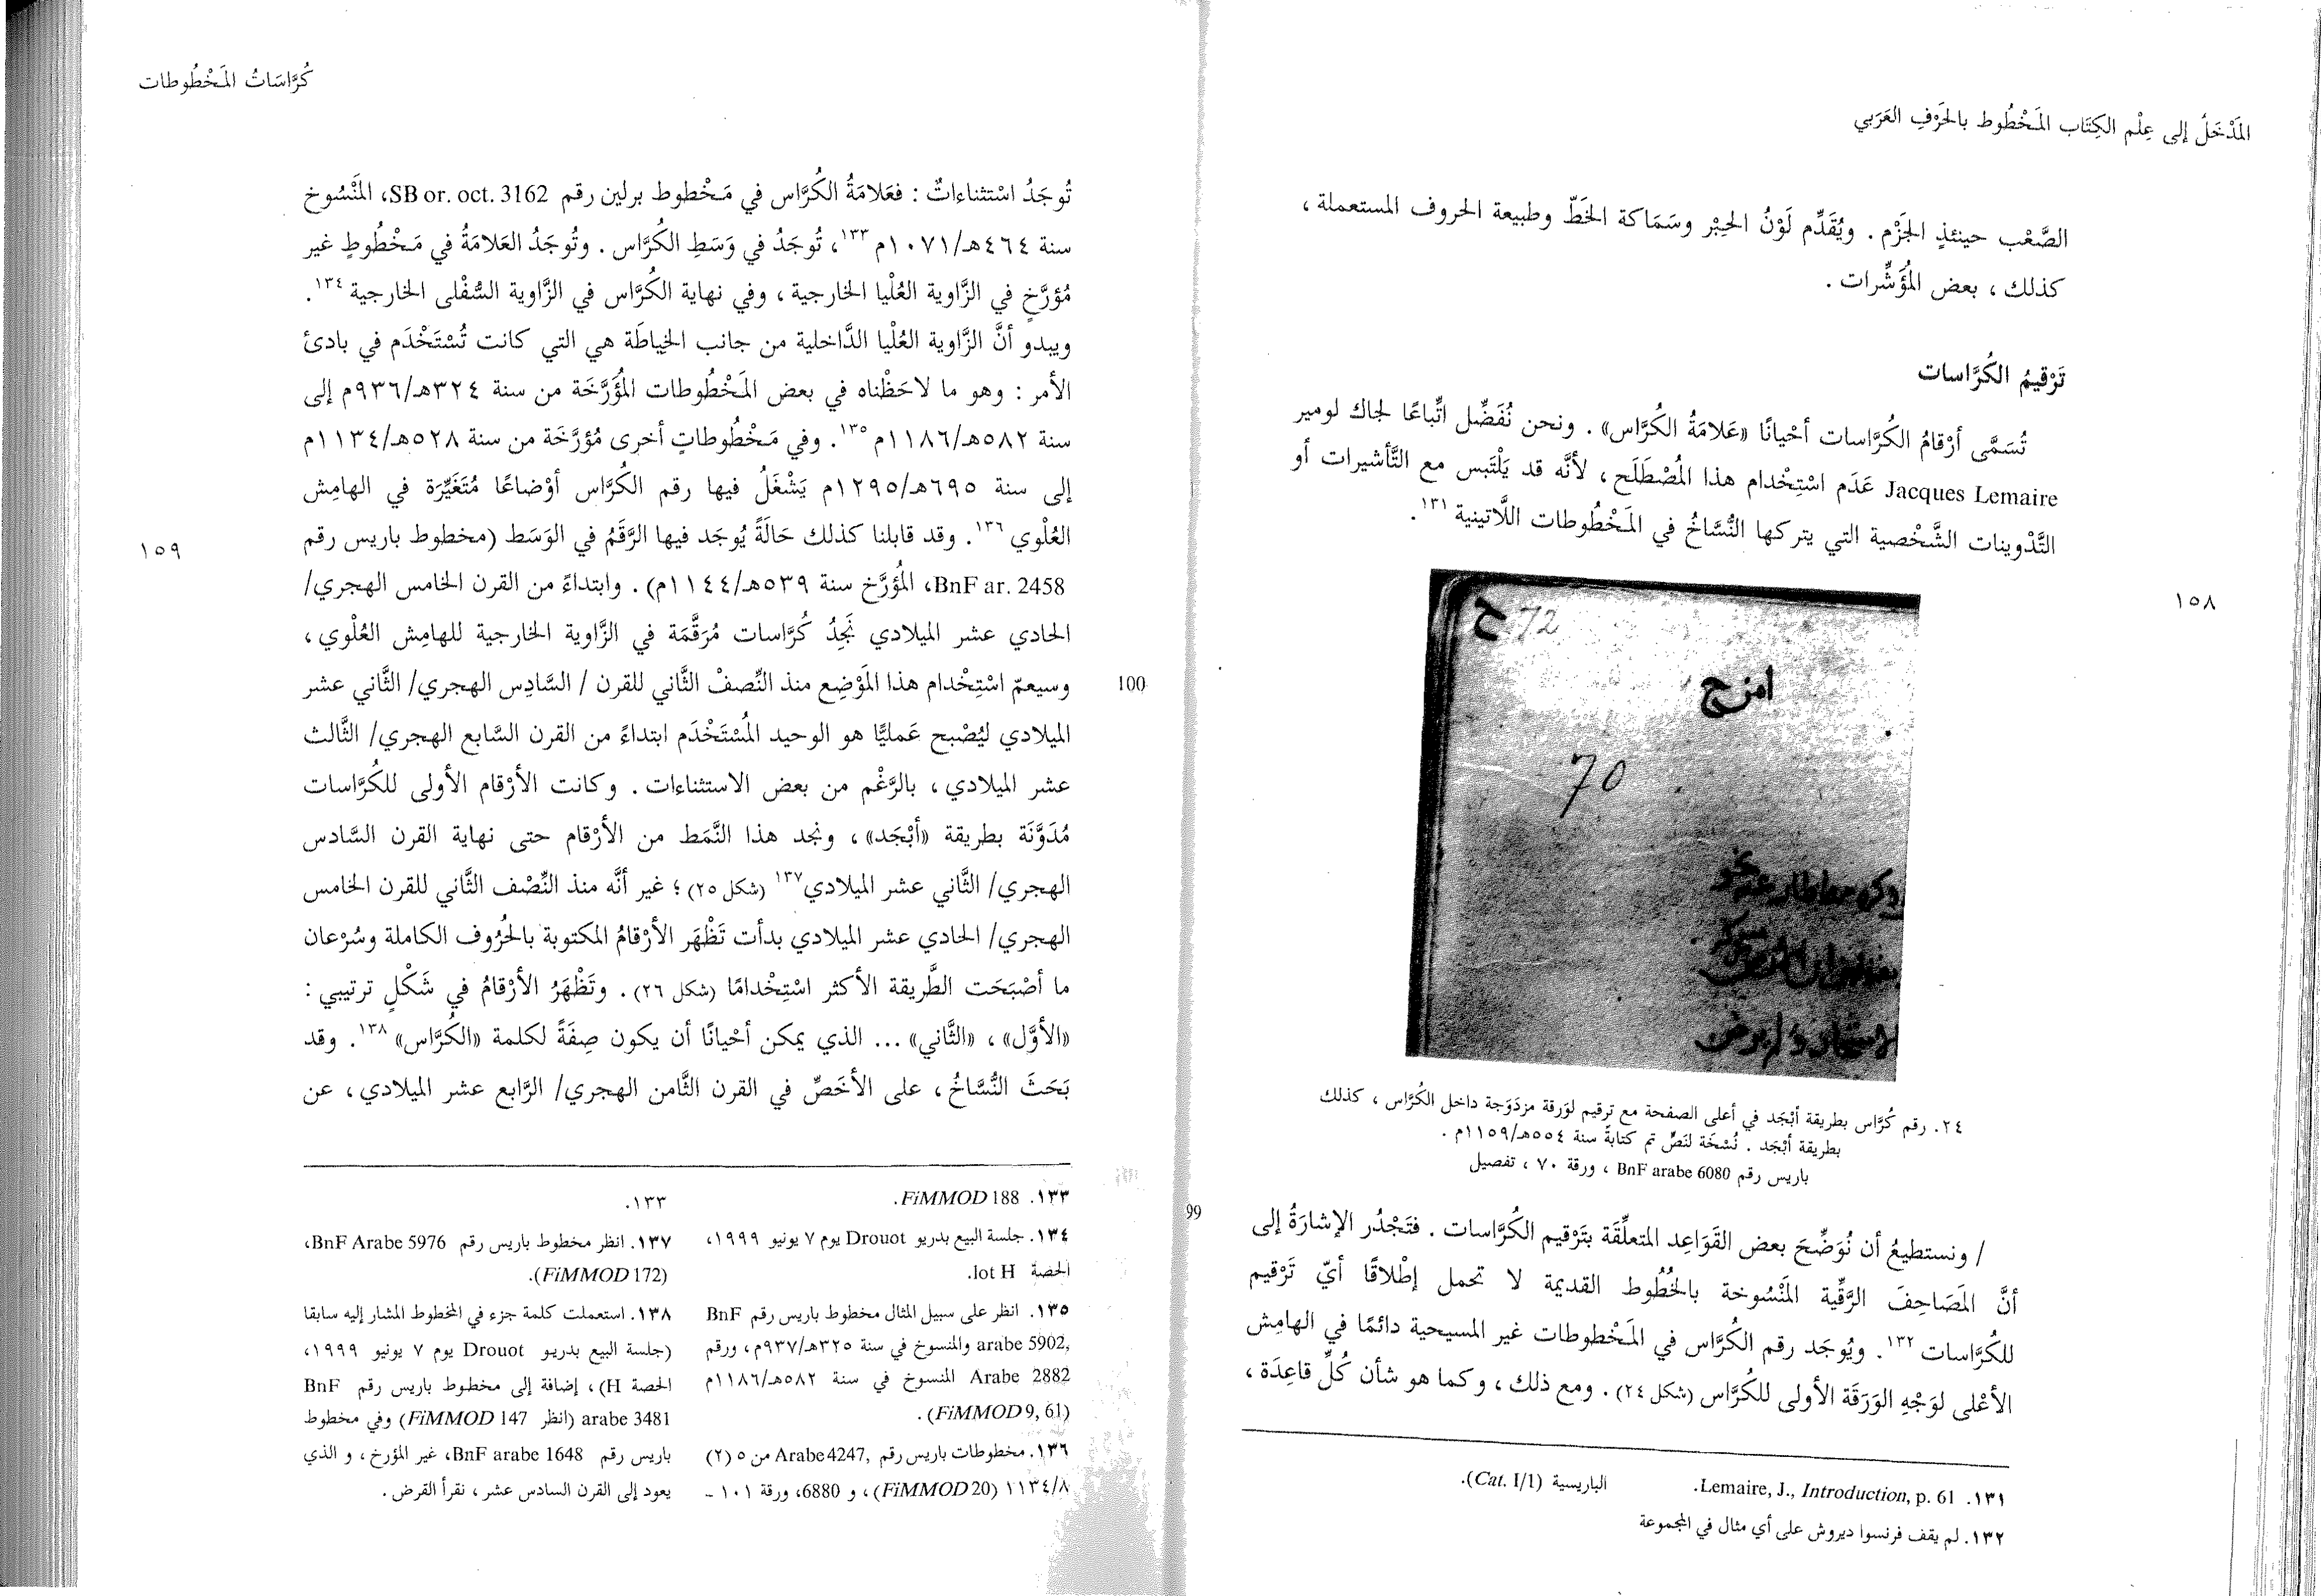 المَدْخَلُ إلى عِلْم الكِتَاب المَخْطُوط بالحَرْفِ العَرَبي
الصَّعْب حينئذٍ الجَزْم . ويُقَدِّم لَوْنُ الحِبْر وسَمَاكة الخَطّ وطبيعة الحروف المستعملة ،
كذلك ، بعض المُؤَشِّرات .
تَرْقيمُ الكُرَّاسات
تُسَمَّى أرْقامُ الكُرَّاسات أحْيانًا «عَلامَةُ الكُرَّاس» . ونحن نُفَضِّل اتِّباعًا لجاك لومير
Jacques Lemaire عَدَم اسْتِخْدام هذا المُصْطَلَح ، لأنَّه قد يَلْتَبِس مع التَّأشيرات أو
التَّدْوينات الشَّخْصية التي يتركها النُّسَّاخُ في المَخْطُوطات اللَّاتينية ١٣١.
١٥٨
ح 72
امزج
70
٢٤. رقم كُرَّاس بطريقة أبْجَد في أعلى الصفحة مع ترقيم لوَرقة مزدَوَجة داخل الكُرَّاس ، كذلك
بطريقة أبْجَد . نُسْخَة لنَصٍّ تم كتابةً سنة ٥٥٤هـ/١١٥٩م .
باريس رقم BnF arabe 6080 ، ورقة ٧٠ ، تفصيل
99
/ ونستطيعُ أن نُوَضِّحَ بعض القَوَاعِد المتعلِّقَة بتَرْقيم الكُرَّاسات . فتَجْدُر الإشارَةُ إلى
أنَّ المَصَاحِفَ الرَّقِّية المَنْسُوخة بالخُطُوط القديمة لا تحمل إطْلاقًا أيّ تَرْقيم
للكُرَّاسات ١٣٢. ويُوجَد رقم الكُرَّاس في المَخْطوطات غير المسيحية دائمًا في الهامِش
الأعْلى لوَجْهِ الوَرَقَة الأولى للكُرَّاس (شكل ٢٤) . ومع ذلك ، وكما هو شأن كُلِّ قاعِدَة ،
١٣١. Lemaire, J., Introduction, p. 61.
١٣٢. لم يقف فرنسوا ديروش على أي مثال في المجموعة
الباريسية (Cat. I/1).
كُرَّاسَاتُ المَخْطُوطات
تُوجَدُ اسْتثناءاتٌ : فعَلامَةُ الكُرَّاس في مَخْطوط برلين رقم SB or. oct. 3162، المَنْسُوخ
سنة ٤٦٤هـ/١٠٧١م ١٣٣، تُوجَدُ في وَسَطِ الكُرَّاس . وتُوجَدُ العَلامَةُ في مَخْطُوطٍ غير
مُؤرَّخٍ في الزَّاوية العُلْيا الخارجية ، وفي نهاية الكُرَّاس في الزَّاوية السُّفْلى الخارجية ١٣٤.
ويبدو أنَّ الزَّاوية العُلْيا الدَّاخلية من جانب الخِياطَة هي التي كانت تُسْتَخْدَم في بادئ
الأمر : وهو ما لاحَظْناه في بعض المَخْطُوطات المُؤَرَّخَة من سنة ٣٢٤هـ/٩٣٦م إلى
سنة ٥٨٢هـ/١١٨٦م ١٣٥. وفي مَخْطُوطاتٍ أخرى مُؤرَّخَة من سنة ٥٢٨هـ/١١٣٤م
إلى سنة ٦٩٥هـ/١٢٩٥م يَشْغَلُ فيها رقم الكُرَّاس أوْضاعًا مُتَغَيِّرَة في الهامِش
العُلْوي ١٣٦. وقد قابلنا كذلك حَالَةً يُوجَد فيها الرَّقَمُ في الوَسَط (مخطوط باريس رقم
BnF ar. 2458، المُؤرَّخ سنة ٥٣٩هـ/١١٤٤م) . وابتداءً من القرن الخامس الهجري/
الحادي عشر الميلادي نَجِدُ كُرَّاسات مُرَقَّمَة في الزَّاوية الخارجية للهامِش العُلْوي ،
وسيعمّ اسْتِخْدام هذا المَوْضِع منذ النِّصفْ الثَّاني للقرن / السَّادِس الهجري/ الثَّاني عشر
الميلادي ليُصْبح عَمليًّا هو الوحيد المُسْتَخْدَم ابتداءً من القرن السَّابع الهجري/ الثَّالث
عشر الميلادي ، بالرَّغْم من بعض الاستثناءات . وكانت الأرْقام الأولى للكُرَّاسات
مُدَوَّنَة بطريقة «أبْجَد» ، ونجد هذا النَّمَط من الأرْقام حتى نهاية القرن السَّادس
الهجري/ الثَّاني عشر الميلادي١٣٧ (شكل ٢٥) ؛ غير أنَّه منذ النِّصْف الثَّاني للقرن الخامس
الهجري/ الحادي عشر الميلادي بدأت تَظْهَر الأرْقامُ المكتوبة بالحُرُوف الكاملة وسُرْعان
ما أصْبَحَت الطَّريقة الأكثر اسْتِخْدامًا (شكل ٢٦) . وتَظْهَرُ الأرْقامُ في شَكْلٍ ترتيبي :
«الأوَّل» ، «الثَّاني» ... الذي يمكن أحْيانًا أن يكون صِفَةً لكلمة «الكُرَّاس» ١٣٨. وقد
بَحَثَ النُّسَّاخُ ، على الأخَصِّ في القرن الثَّامن الهجري/ الرَّابع عشر الميلادي ، عن
100
١٥٩
١٣٣. FiMMOD 188.
١٣٤. جلسة البيع بدريو Drouot يوم ٧ يونيو ١٩٩٩،
الحصة lot H.
١٣٥. انظر على سبيل المثال مخطوط باريس رقم BnF
arabe 5902, والمنسوخ في سنة ٣٢٥هـ/٩٣٧م، ورقم
Arabe 2882 المنسوخ في سنة ٥٨٢هـ/١١٨٦م
(FiMMOD 9, 61) .
١٣٦. مخطوطات باريس رقم Arabe 4247, من ٥ (٢)
١١٣٤/٨ (FiMMOD 20)، و 6880، ورقة ١٠١ -
١٣٣.
١٣٧. انظر مخطوط باريس رقم BnF Arabe 5976،
(FiMMOD 172).
١٣٨. استعملت كلمة جزء في المخطوط المشار إليه سابقا
(جلسة البيع بدريو Drouot يوم ٧ يونيو ١٩٩٩،
الحصة H)، إضافة إلى مخطوط باريس رقم BnF
arabe 3481 (انظر FiMMOD 147) وفي مخطوط
باريس رقم BnF arabe 1648، غير المؤرخ ، و الذي
يعود إلى القرن السادس عشر ، نقرأ القرض .